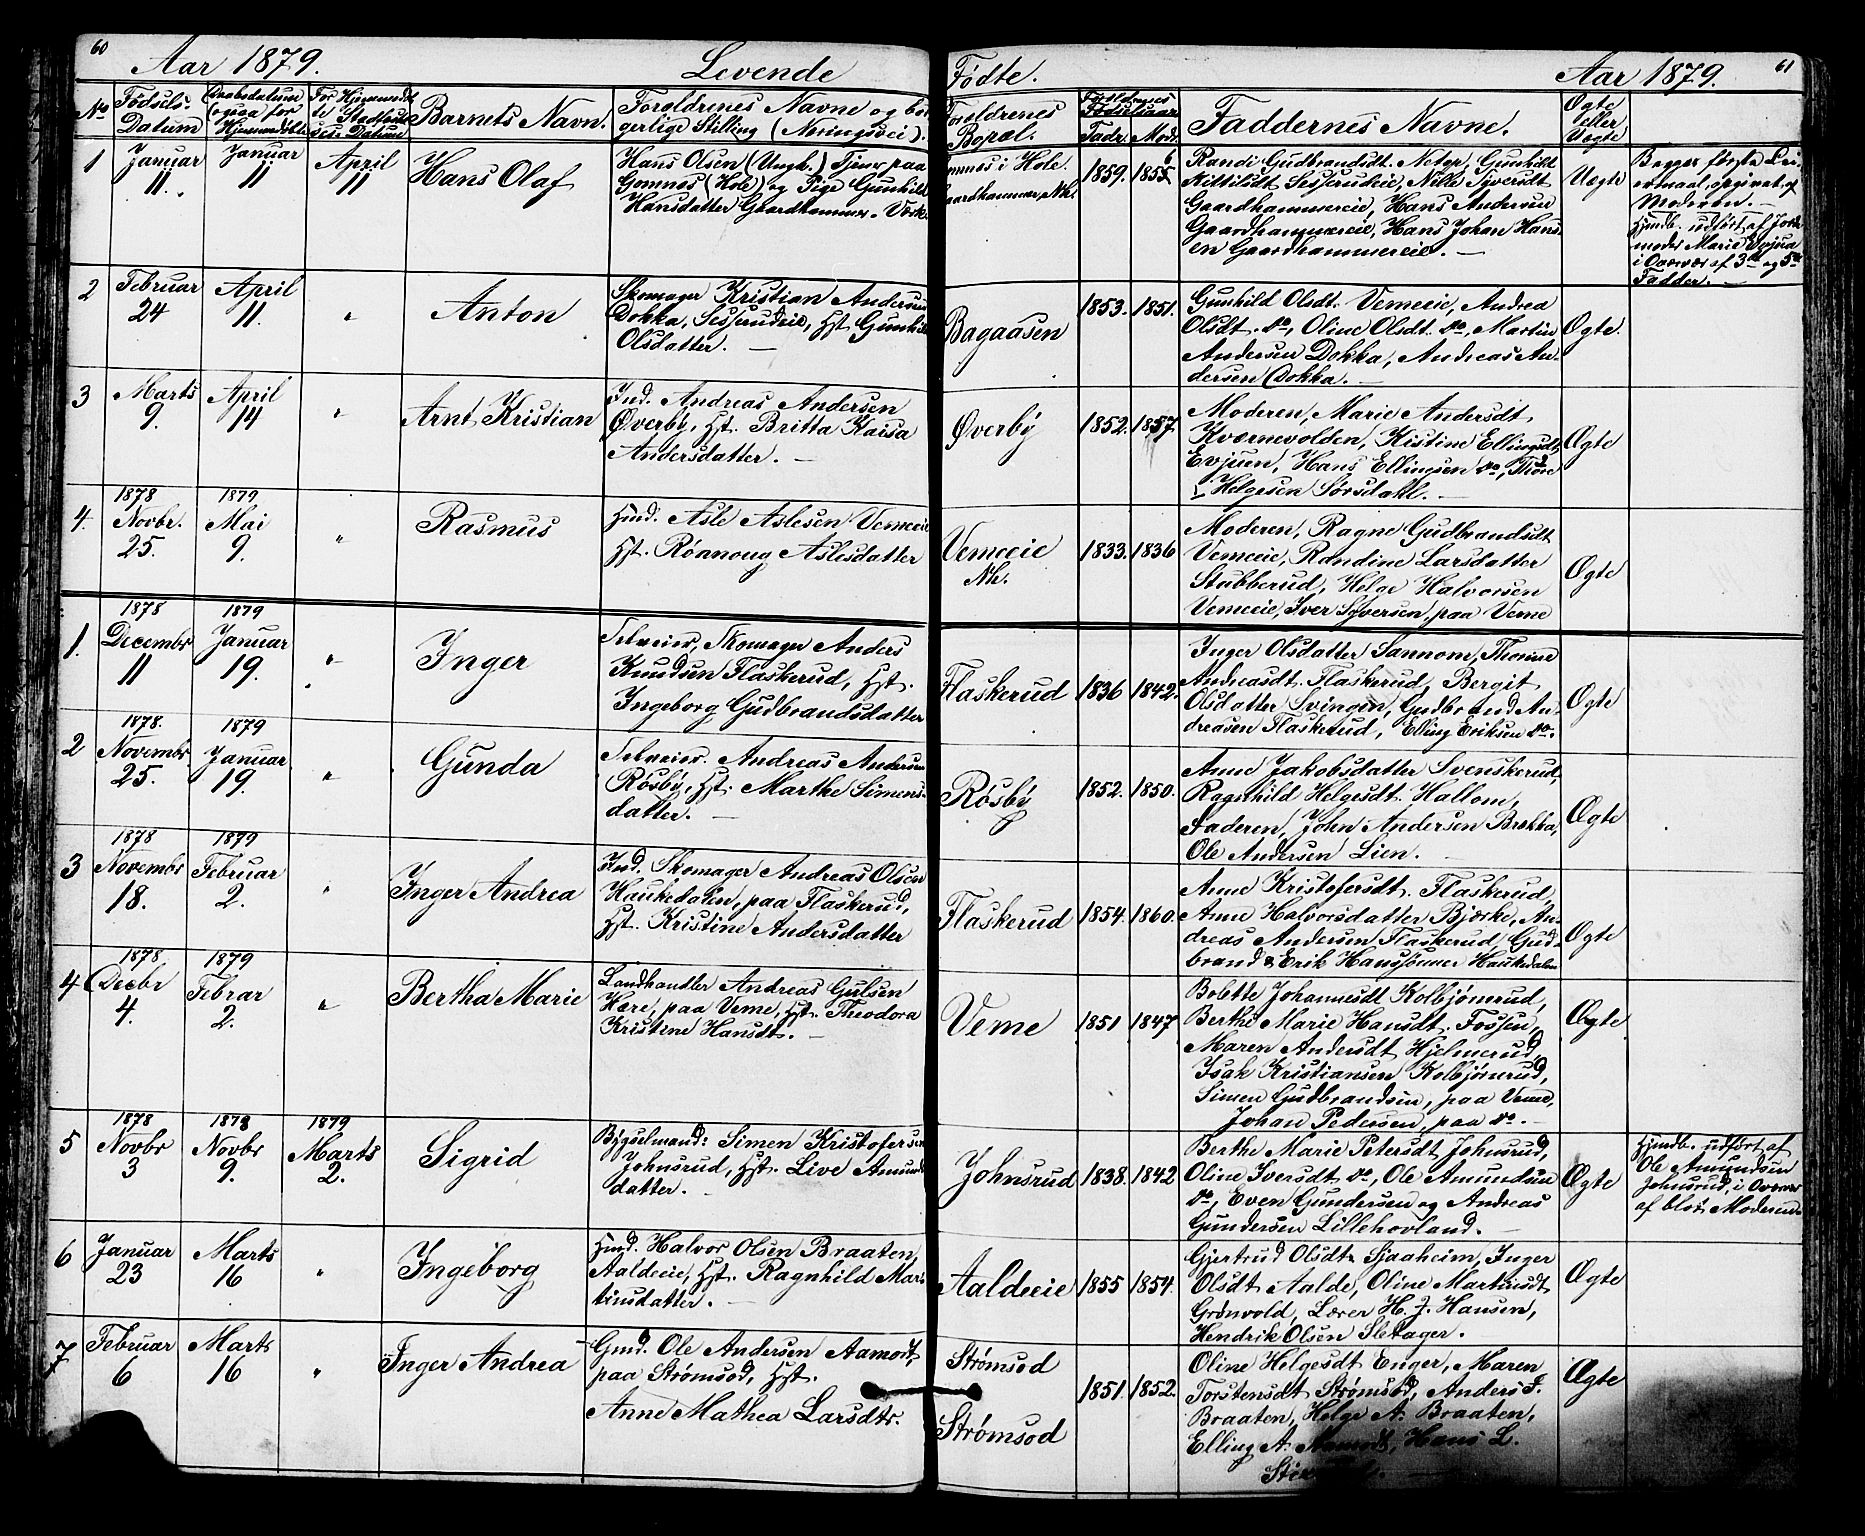 60
Aar 1879.
Levende
Fødte.
Aar 1879.
61
No
Fødsels-
Datum
Daabsdatum
(ogsaa for
Hjemmedøbte
For Hjemmedøb-
te Stadfæstel-
ses Datum
Barnets Navn.
Forældrenes Navne og bor-
gerlige Stilling (Næringsvei).
Forældrenes
Bopæl.
Forældrenes
Fødselsaar
Fadr. Modr.
Faddernes Navne.
Ægte
eller
Uægte
1
Januar
11.
Januar
11
April
11
Hans Olaf
Hans Olsen (Ungk.) Tjener paa
Gomnes (Hole) og Pige Gunhild
Hansdatter Gaardhammer.
Gomnes i Hole.
Gaardhammer, Nh.
1859.
1855
6
Randi Gudbrandsdt. Gunhild
Kittilsdt Sesserudeie, Nille Syversdt
Gaardhammereie, Hans Andersen
Gaardhammereie, Hans Johan Hans-
en Gaardhammereie.
Uægte
Begges første Lei-
ermaal, opgivet af
Moderen.
Hjmdb. udført af Jorde-
moder Marie Evjua
i Overvær af 3die og 5te
Fadder.
2
Februar
24
April
11.
"
Anton
Skomager Kristian Andersen
Dokka, Sesserudeie, Hst. Gunhild
Olsdatter.
Bagaasen
1853.
1851.
Gunhild Olsdt. Vemeeie, Andrea
Olsdt. do, Oline Olsdt. do, Martin
Andersen Dokka, Andreas An-
dersen Dokka.
Ægte.
3
Marts
9.
April
14
"
Arnt Kristian
Ind. Andreas Andersen
Øverby, Hst. Britta Kaisa
Andersdatter.
Øverby
1852.
1857.
Moderen, Marie Andersdt
Kværnevolden, Kistine Ellingsdt
Evjuen, Hans Ellingsen do, Thore
Helgesen Sørsdahl.
Ægte
4.
1878
Novbr.
25.
1879
Mai
9.
"
Rasmus
Hmd. Asle Aslesen Vemeeie
Hst. Røanoug Aslesdatter
Vemeeie
Nh.
1833.
1836
Moderen, Ragne Gudbrandsdt
Vemeeie, Randine Larsdatter
Stubberud, Helge Halvorsen
Vemeeie, Iver Syversen paa Veme
Ægte
1.
1878
Decembr
11
1879
Januar
19.
"
Inger
Selveier, Skomager Anders
Knudsen Flaskerud, Hst.
Ingeborg Gudbrandsdatter
Flaskerud
1836
1842.
Inger Olsdatter Sannom, Thorine
Andreasdt. Flaskerud, Bergit
Olsdatter Svingen, Gudbrand An-
dreasen Flaskerud, Elling Eriksen do.
Ægte
2
1878.
Novembr
25.
1879
Januar
19.
"
Gunda
Selveier. Andreas Andersen
Røsby, Hst. Marthe Simens-
datter.
Røsby
1852.
1850.
Anne Jakobsdatter Svenskerud,
Ragnhild Helgesdt. Hallom,
Faderen, John Andersen Brekka,
Ole Andersen Lien.
Ægte
3
1878
Novembr
18.
1879
Februar
2.
"
Inger Andrea
Ind. Skomager Andreas Olsen
Haukedalen, paa Flaskerud,
Hst. Kristine Andersdatter
Flaskerud
1854.
1860.
Anne Kristofersdt. Flaskerud,
Anne Halvorsdatter Bjørke, An-
dreas Andersen Flaskerud, Gud-
brand & Erik Hanssønner Haukedalen
Ægte
4
1878.
Decbr
4.
1879
Febrar
2.
"
Bertha Marie
Landhandler Andreas Gulsen
Hære, paa Veme, Hst. Theodora
Kristine Hansdtr.
Veme
1851
1847
Bolette Johannesdt Kolbjørnrud,
Berthe Marie Hansdt. Fossen,
Maren Andersdt Hjelmerud,
Isak Kristiansen Kolbjørnrud,
Simen Gudbrandsen, paa Veme,
Johan Pedersen, paa do.
Ægte
5
1878
Novbr
3
1878
Novbr
9.
1879
Marts
2.
Sigrid
Bygselmand: Simen Kristofersen
Johnsrud, Hst. Live Amunds-
datter.
Johnsrud
1838.
1842
Berthe Marie Petersdt Johnsrud,
Oline Iversdt do, Ole Amundsen
do, Even Gundersen og Andreas
Gundersen Lillehovland.
Ægte
Hjmdb. udført af
Ole Amundsen
Johnsrud, i Overvær
af blot Moderen.
6
Januar
23
Marts
16
"
Ingeborg
Hmd. Halvor Olsen Braaten,
Aaldeeie, Hst. Ragnhild Mar-
tinsdatter.
Aaldeeie
1855
1854.
Gjertrud Olsdt. Sjaaheim, Inger
Olsdt Aalde, Oline Martinsdt
Grønvold, Lærer H. J. Hansen,
Hendrik Olsen Sletager.
Ægte
7
Februar
6
Marts
16
"
Inger Andrea
Gmd. Ole Andersen Aamodt,
paa Strømsod, Hst.
Anne Mathea Larsdtr.
Strømsod
Strømsod
1851.
1852.
Oline Helgesdt Enger, Maren
Torstensdt Strømsod, Anders J.
Braaten, Helge A. Braaten,
Elling A. Aamodt, Hans L.
Ægte